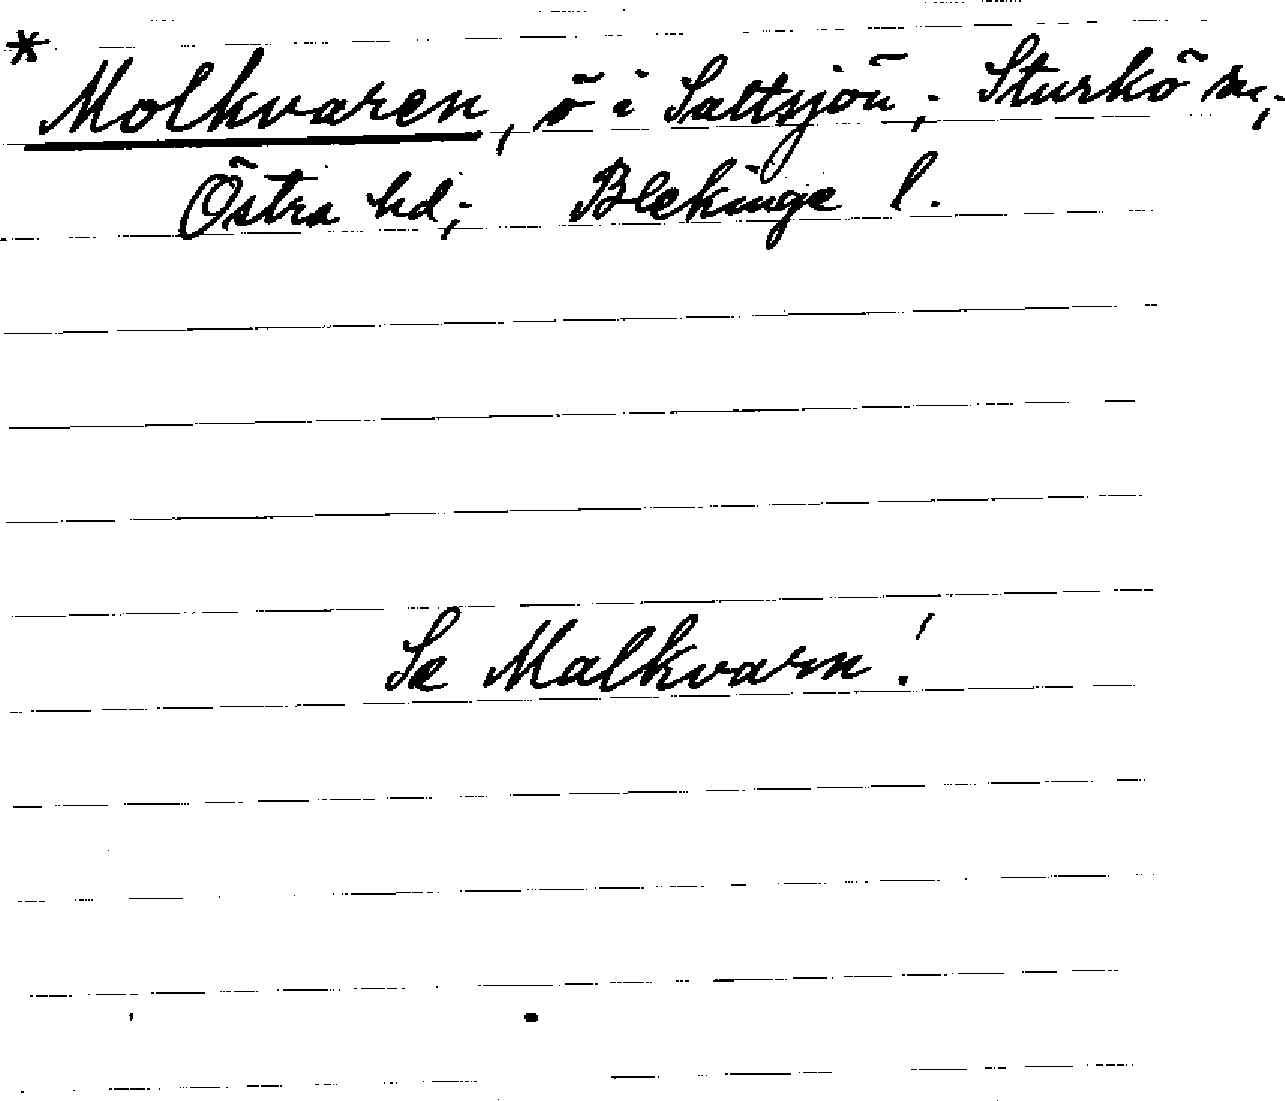 * Molkvaren, ö i Saltsjön; Sturkö sn;
Östra hd; Blekinge l.
Se Malkvarn!